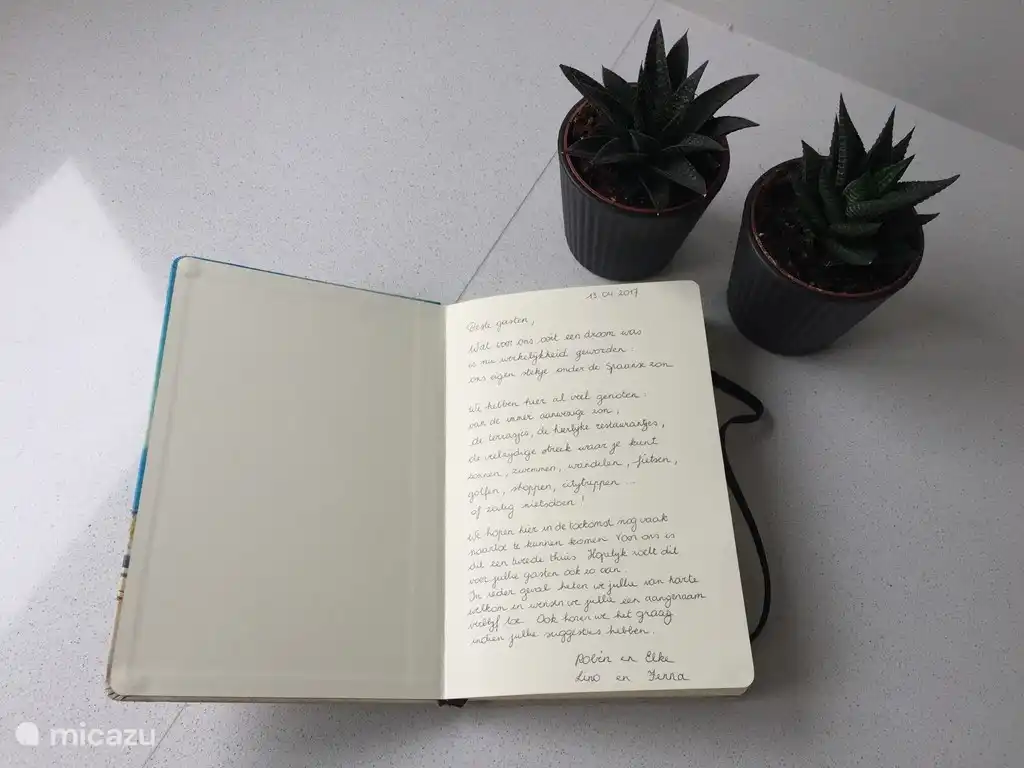 13.04.2017
Beste gasten,
Wat voor ons ooit een droom was
is nu werkelijkheid geworden :
ons eigen stekje onder de Spaanse zon
We hebben hier al veel genoten :
van de immer aanwezige zon,
de terrasjes, de heerlijke restaurantjes,
de veelzijdige streek waar je kunt
zonnen, zwemmen, wandelen, fietsen,
golfen, shoppen, citytrippen ...
of zalig nietsdoen !
We hopen hier in de toekomst nog vaak
naartoe te kunnen komen. Voor ons is
dit een tweede thuis. Hopelijk voelt dit
voor jullie gasten ook zo aan.
In ieder geval heten we jullie van harte
welkom en wensen we jullie een aangenaam
verblijf toe. Ook horen we het graag
indien jullie suggesties hebben.
Robin en Elke
Lino en Jenna
micazu